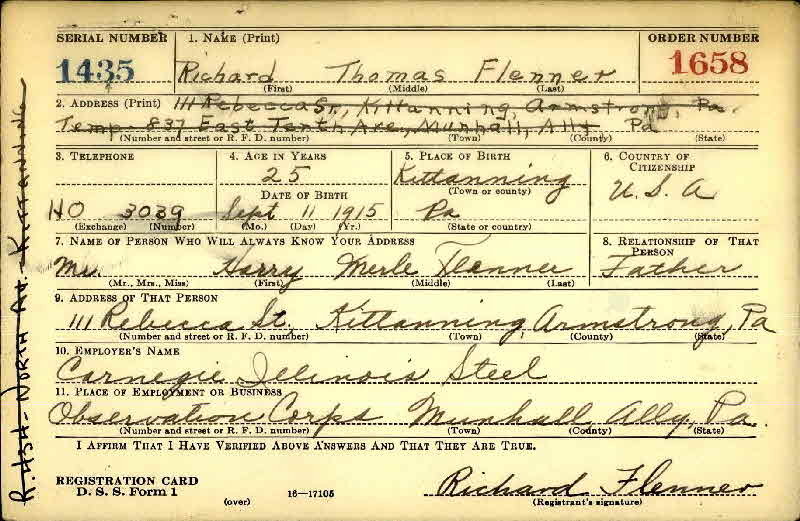 SERIAL NUMBER 1. NAME (Print) ORDER NUMBER
1435 Richard Thomas Flenner 1658
(First) (Middle) (Last)
2. ADDRESS (Print) 111 Rebecca St, Kittanning, Armstrong, Pa.
Temp-837 East Tenth Ave, Munhall, Ally Pa
(Number and street or R. F. D. number) (Town) (County) (State)
3. TELEPHONE 4. AGE IN YEARS 5. PLACE OF BIRTH 6. COUNTRY OF CITIZENSHIP
25 Kittanning U.S.A
DATE OF BIRTH (Town or county)
HO 3039 Sept 11 1915 Pa
(Exchange) (Number) (Mo.) (Day) (Yr.) (State or country)
7. NAME OF PERSON WHO WILL ALWAYS KNOW YOUR ADDRESS 8. RELATIONSHIP OF THAT PERSON
Mr. Harry Merle Flenner Father
(Mr., Mrs., Miss) (First) (Middle) (Last)
9. ADDRESS OF THAT PERSON
111 Rebecca St. Kittanning Armstrong, Pa
(Number and street or R. F. D. number) (Town) (County) (State)
10. EMPLOYER'S NAME
Carnegie Illinois Steel
11. PLACE OF EMPLOYMENT OR BUSINESS
Observation Corps Munhall Ally, Pa.
(Number and street or R. F. D. number) (Town) (County) (State)
I AFFIRM THAT I HAVE VERIFIED ABOVE ANSWERS AND THAT THEY ARE TRUE.
REGISTRATION CARD
D. S. S. Form 1 (over) 16—17105 Richard Flenner
(Registrant's signature)
R.434-NORTH AV.-KITTANNING